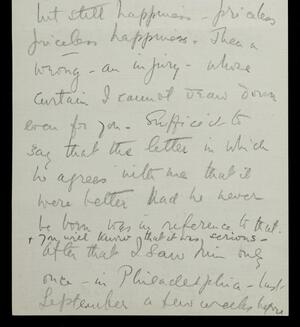 but still happiness - priceless
priceless happiness. Then a
wrong - an injury - whose
curtain I cannot draw down
even for you. Suffice it to
say that the letter in which
he agrees with me that it
were better had he never
be born was in reference to that.
& you will know that it was serious -
After that I saw him only
once - in Philadelphia - last
September a few weeks before